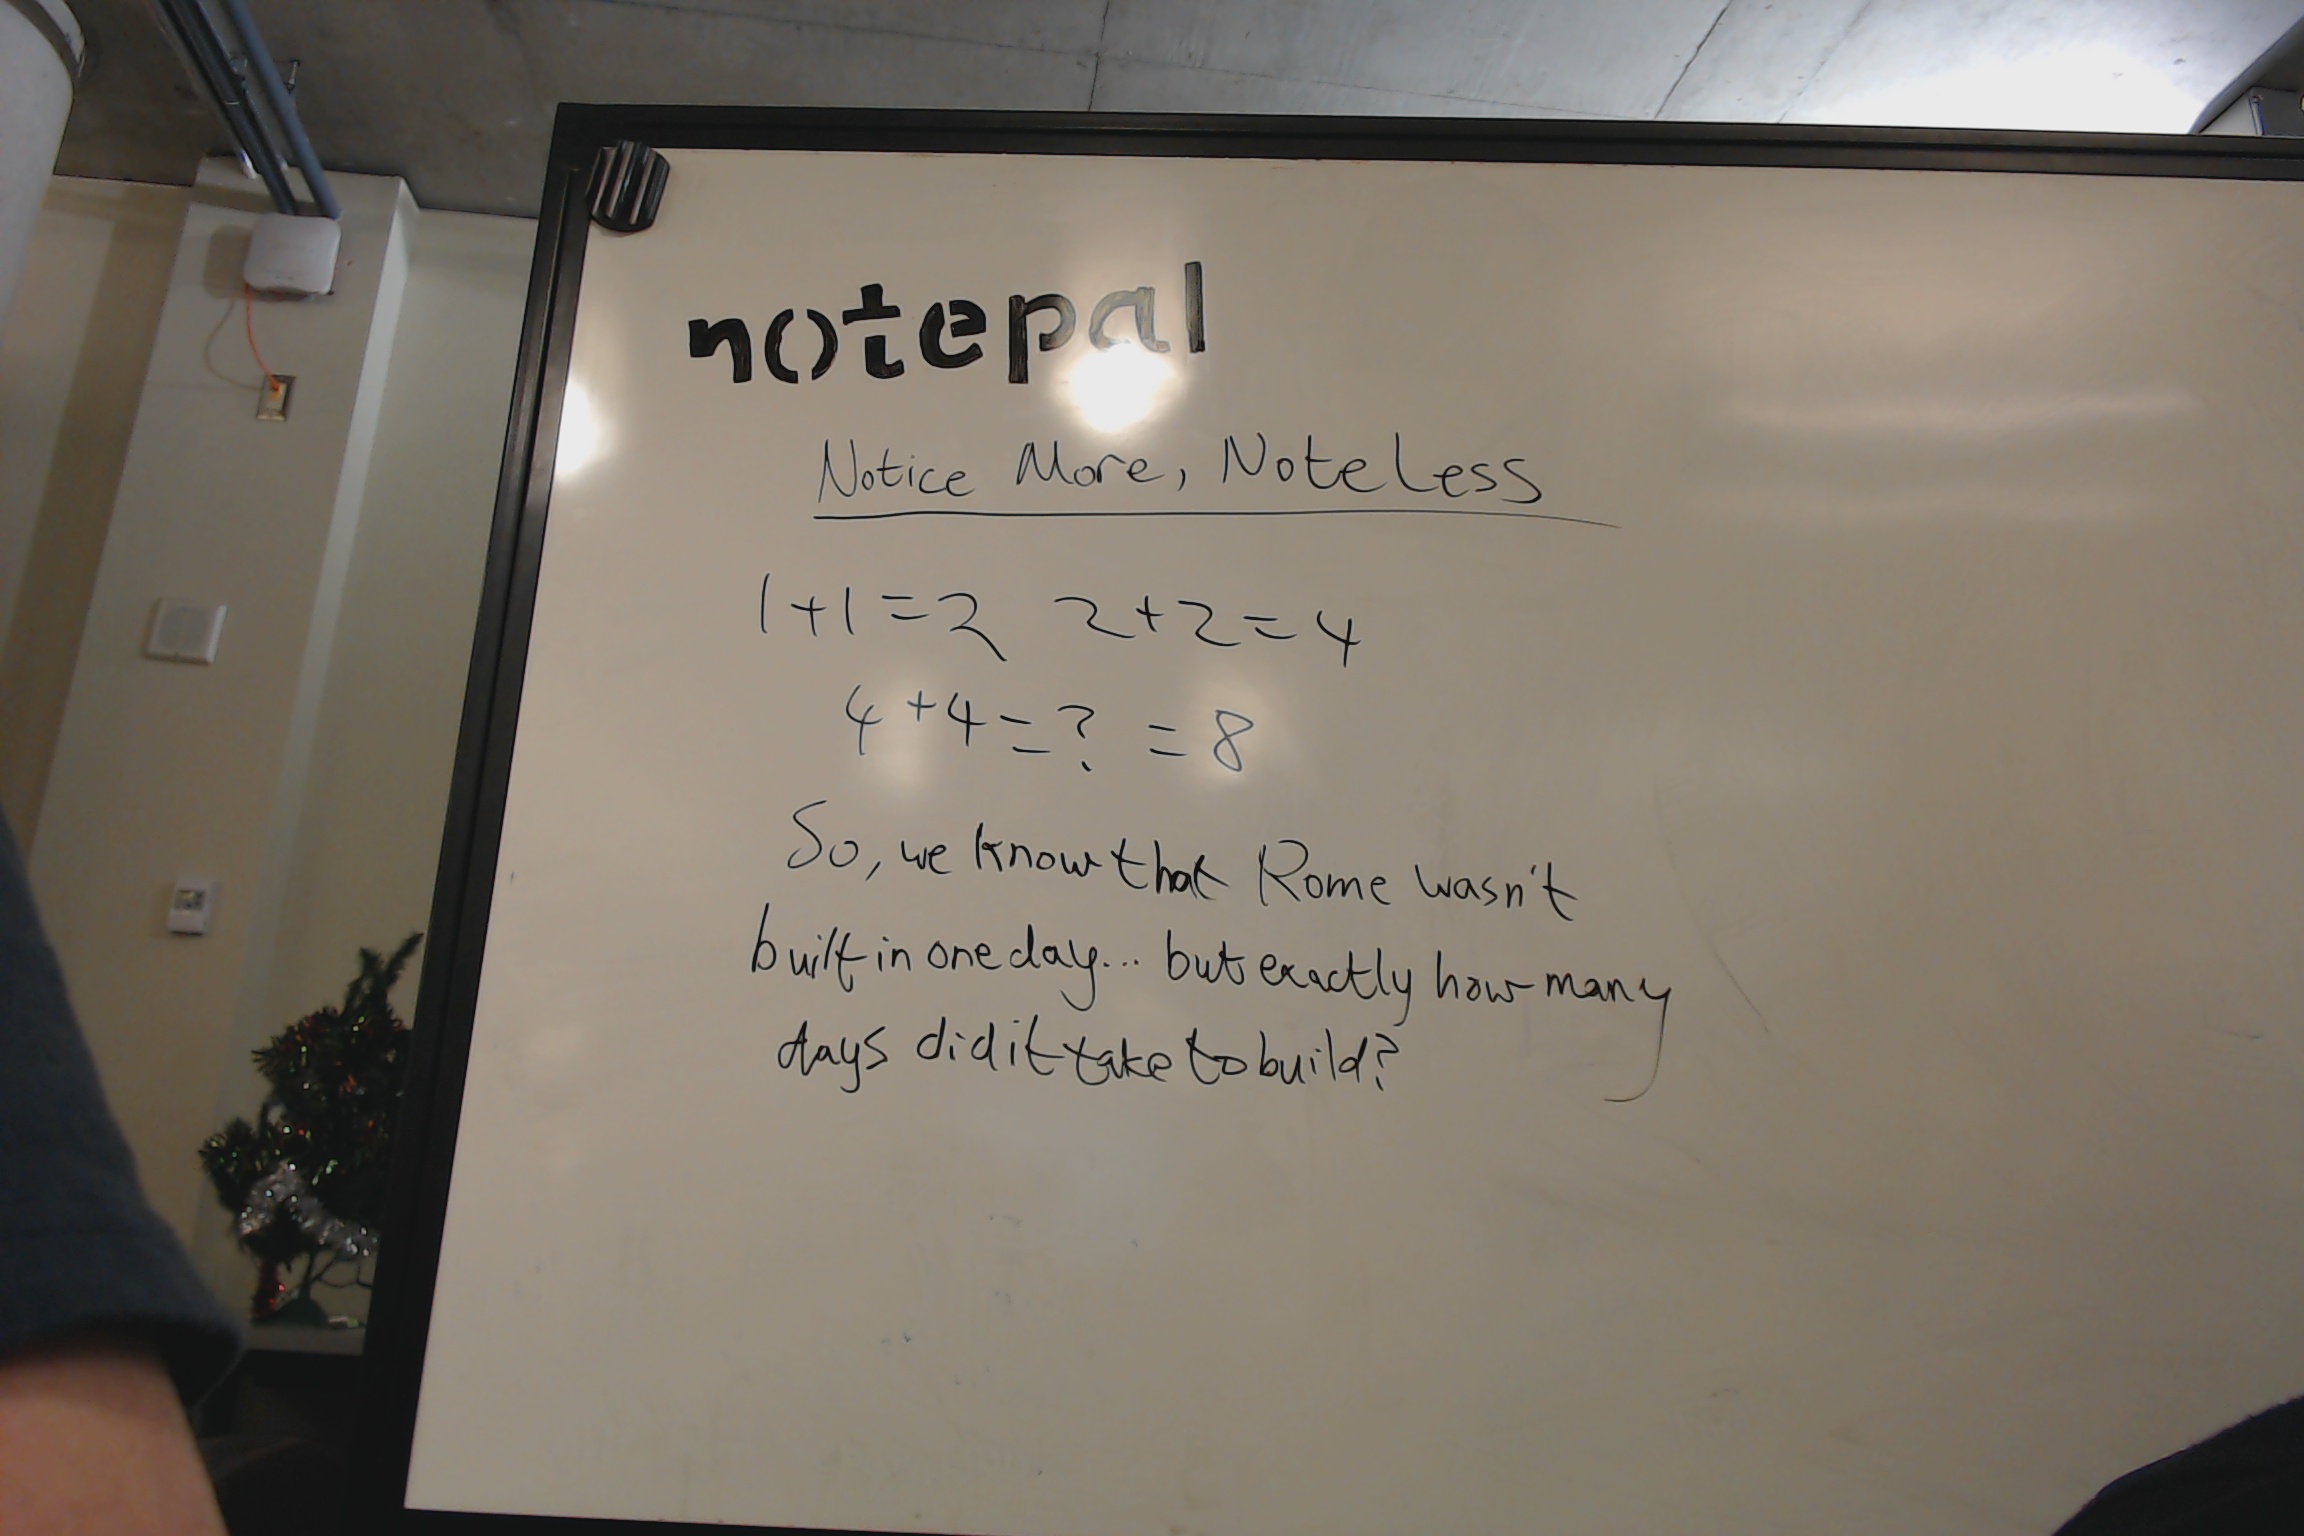 notepal
Notice More, Note Less
1+1=2 2+2=4
4+4=? =8
So, we know that Rome wasn't
built in one day... but exactly how many
days did it take to build?